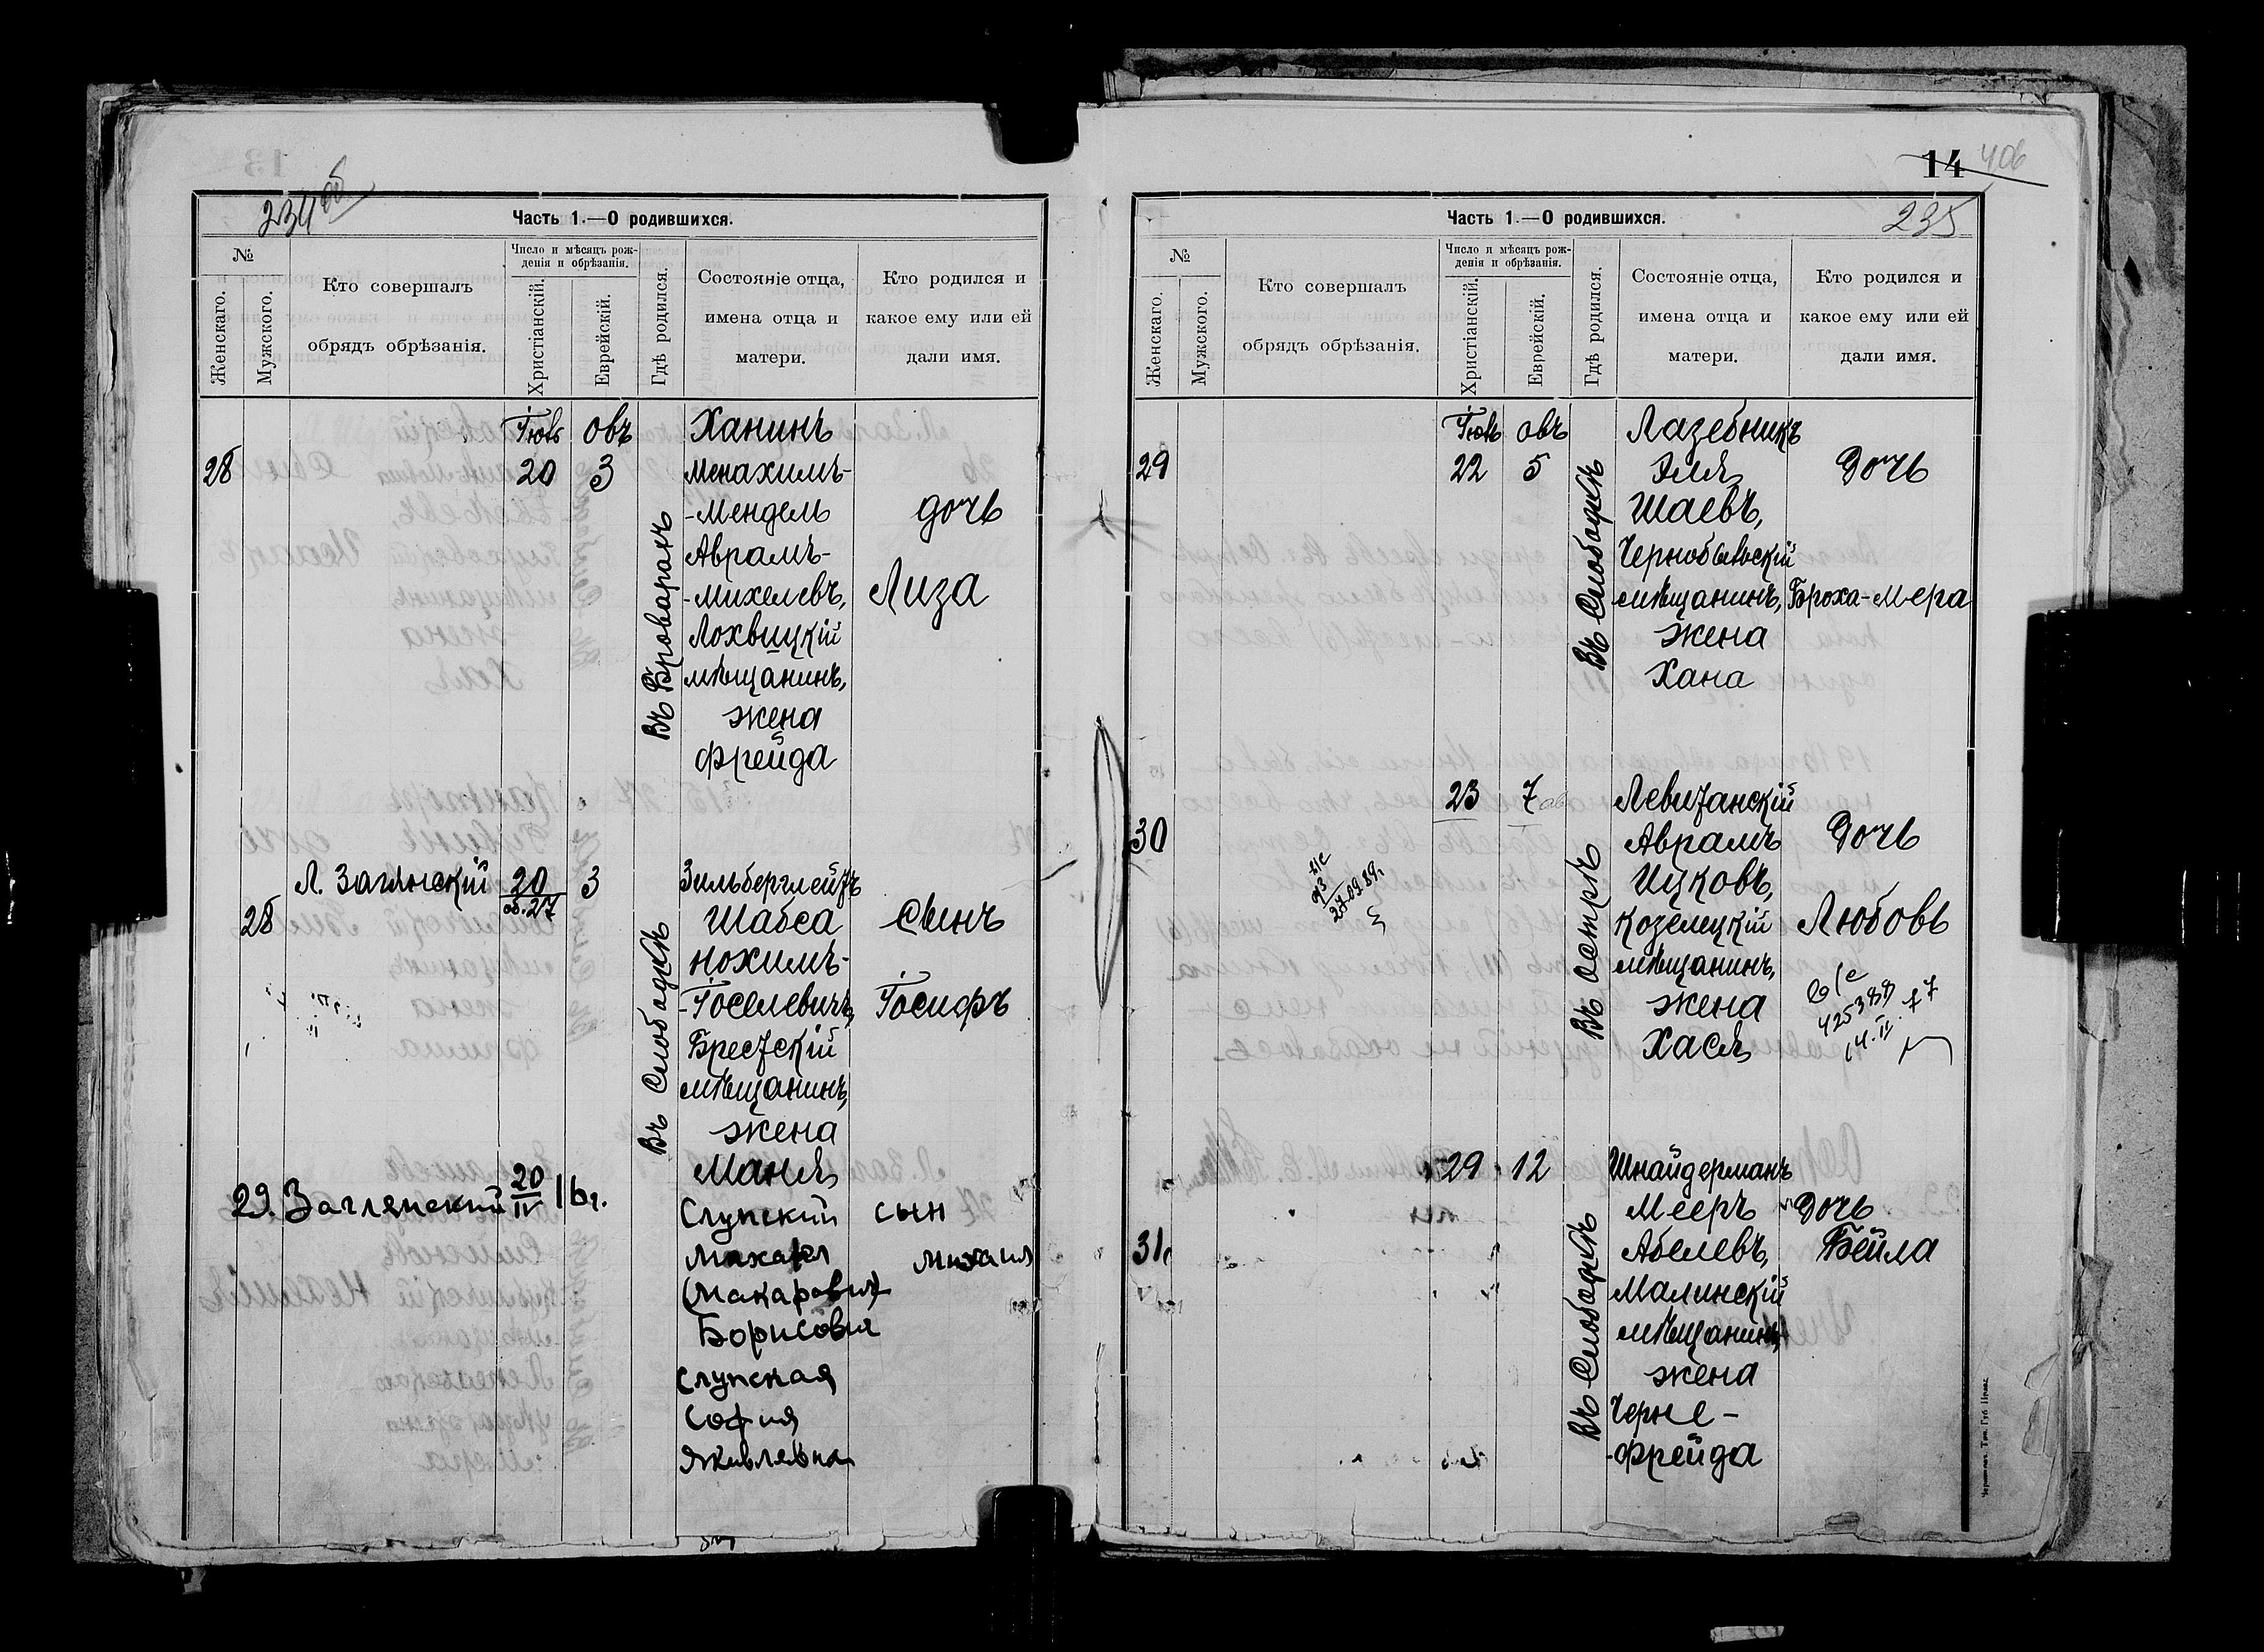 234 об
Часть 1.—О родившихся.
№
Женскаго.
Мужского.
Кто совершалъ
обрядъ обрѣзанія.
Число и мѣсяцъ рож-
денія и обрѣзанія.
Христіанскій.
Еврейскій.
Гдѣ родился.
Состояніе отца,
имена отца и
матери.
Кто родился и
какое ему или ей
дали имя.
Іюль овъ Ханинъ
28 20 3 Менахимъ-
-Мендель дочь
Аврамъ-
-Михелевъ, Лиза
Лохвицкій
мѣщанинъ,
жена
Фрейда
Въ Броварахъ
Л. Заглянскій 20 3 Зильберглейтъ
об. 27
28 Шабса сынъ
Нохимъ-
-Іоселевичъ, Іосифъ
Брестскій
мѣщанинъ,
жена
Маня
Въ Слободкѣ
29. Заглянский 20/IV 16г. Слупский сын
Махаил Михаил
(Макарович)
Борисович
Слупская
София
Яковлевна
14 406
235
Часть 1.—О родившихся.
№
Женскаго.
Мужского.
Кто совершалъ
обрядъ обрѣзанія.
Число и мѣсяцъ рож-
денія и обрѣзанія.
Христіанскій.
Еврейскій.
Гдѣ родился.
Состояніе отца,
имена отца и
матери.
Кто родился и
какое ему или ей
дали имя.
Іюль овъ Лазебникъ
29 22 5 Эля Дочь
Шаевъ,
Чернобыльскій
мѣщанинъ, Броха-Мера
жена
Хана
Въ Слободкѣ
23 7 Левитанскій
30 Аврамъ Дочь
Ицковъ,
Козелецкій Любовь
мѣщанинъ,
жена
Хася
Въ Острѣ
27.09.89г.
425388
14.II.77
29 12 Шнайдерманъ
Мееръ Дочь
31 Абелевъ, Бейла
Малинскій
мѣщанинъ,
жена
Черне-
-Фрейда
Въ Слободкѣ